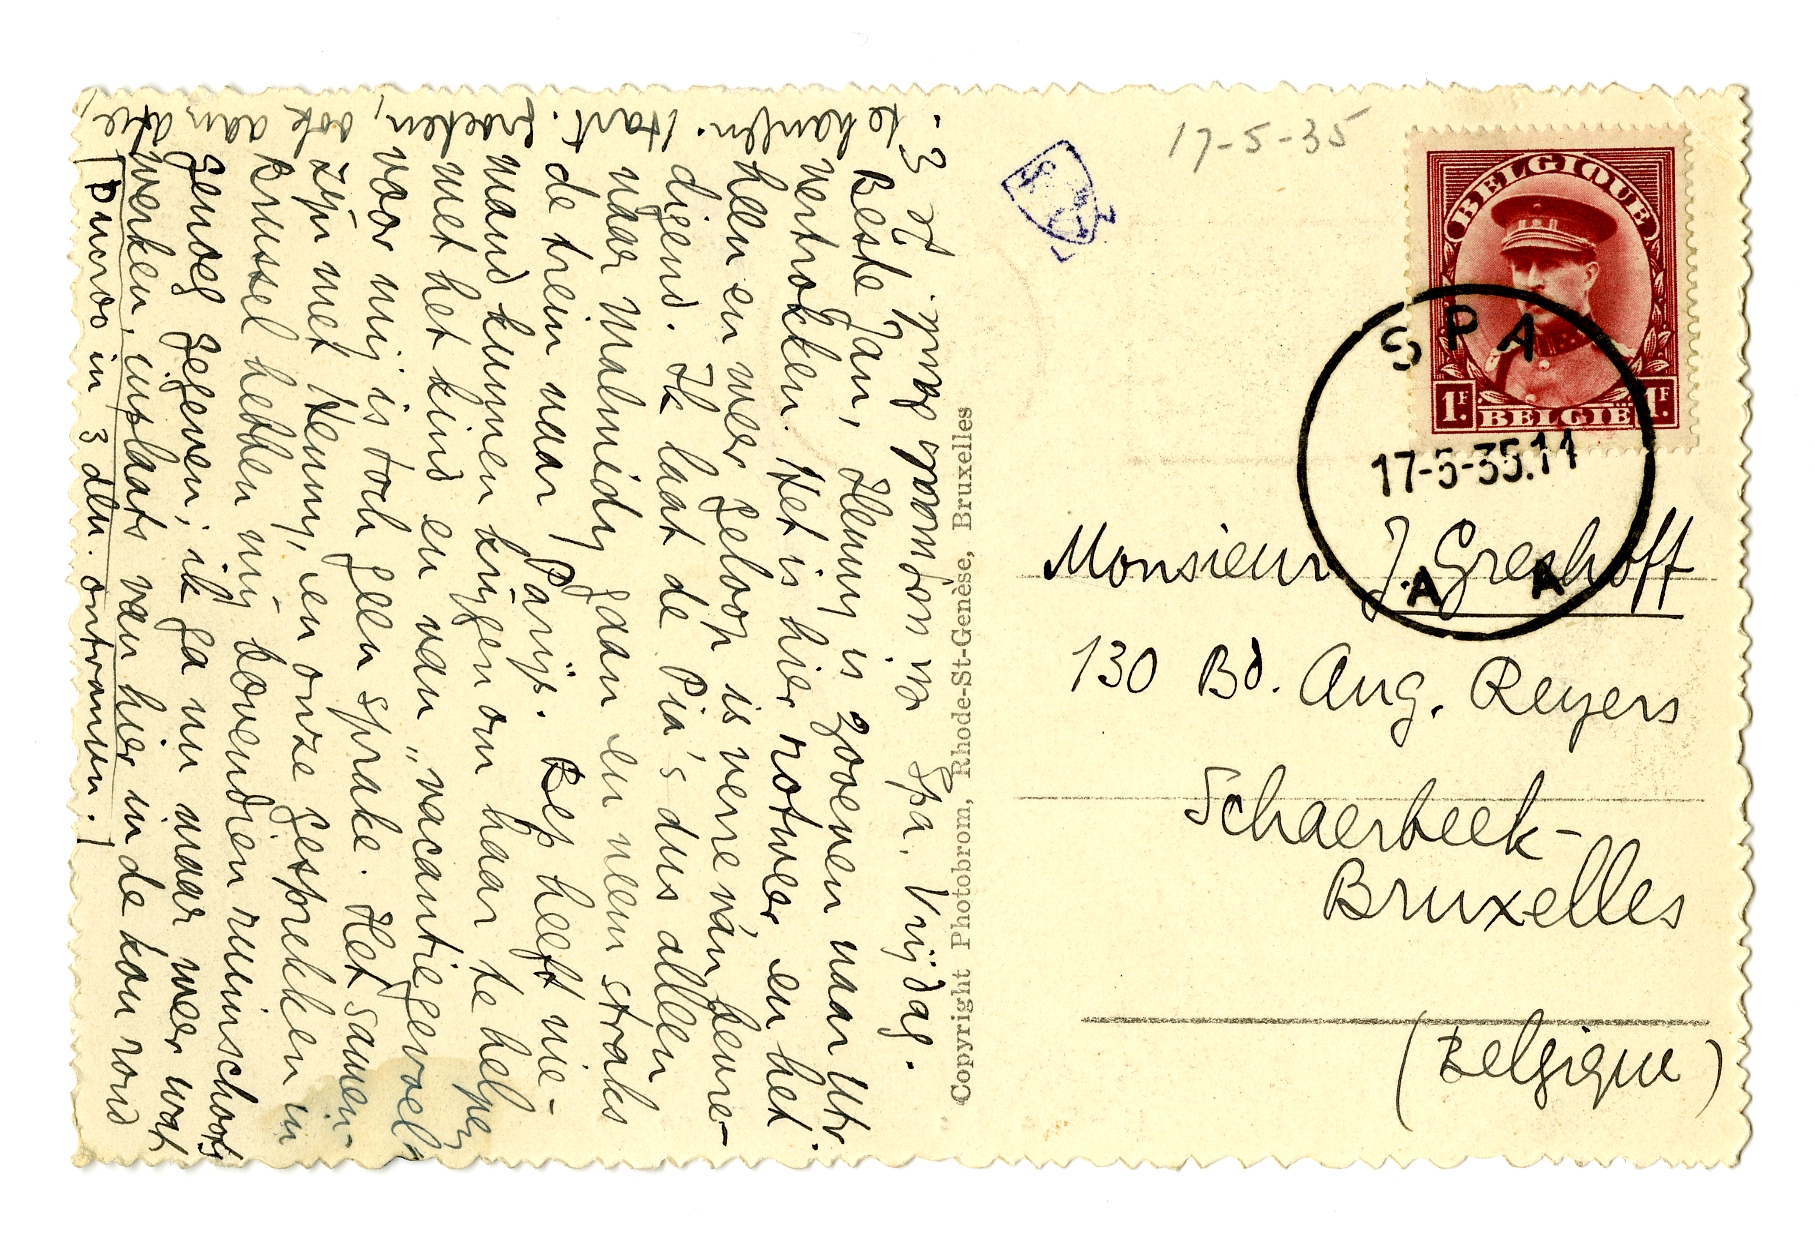 17-5-35
BELGIQUE
1F. 1F.
BELGIË
SPA
17-5-35.11
A A
Monsieur J. Greshoff
130 Bd. Aug. Reyers
Schaerbeek-
Bruxelles
(Belgique)
Copyright Photobrom, Rhode-St-Genèse, Bruxelles
Spa. Vrijdag.
Beste Jan, Henny is zooeven naar Utr.
vertrokken. Het is hier rotweer, en het
heen en weer geloop is verre van bevre-
digend. Ik laat de Pia's dus alleen
naar Malmédy gaan en neem straks
de trein naar Parijs. Bep heeft nie-
mand kunnen krijgen om haar te helpen
met het kind en van „vacantiegevoel"
voor mij is toch geen sprake. Het samen-
zijn met Henny, en onze gesprekken in
Brussel hebben mij bovendien ruimschoots
genoeg gegeven; ik ga nu maar weer wat
werken, inplaats van hier in de kou rond
te Hart. groeten, ook aan Atie,
je E.
Ducroo in 3 dln.